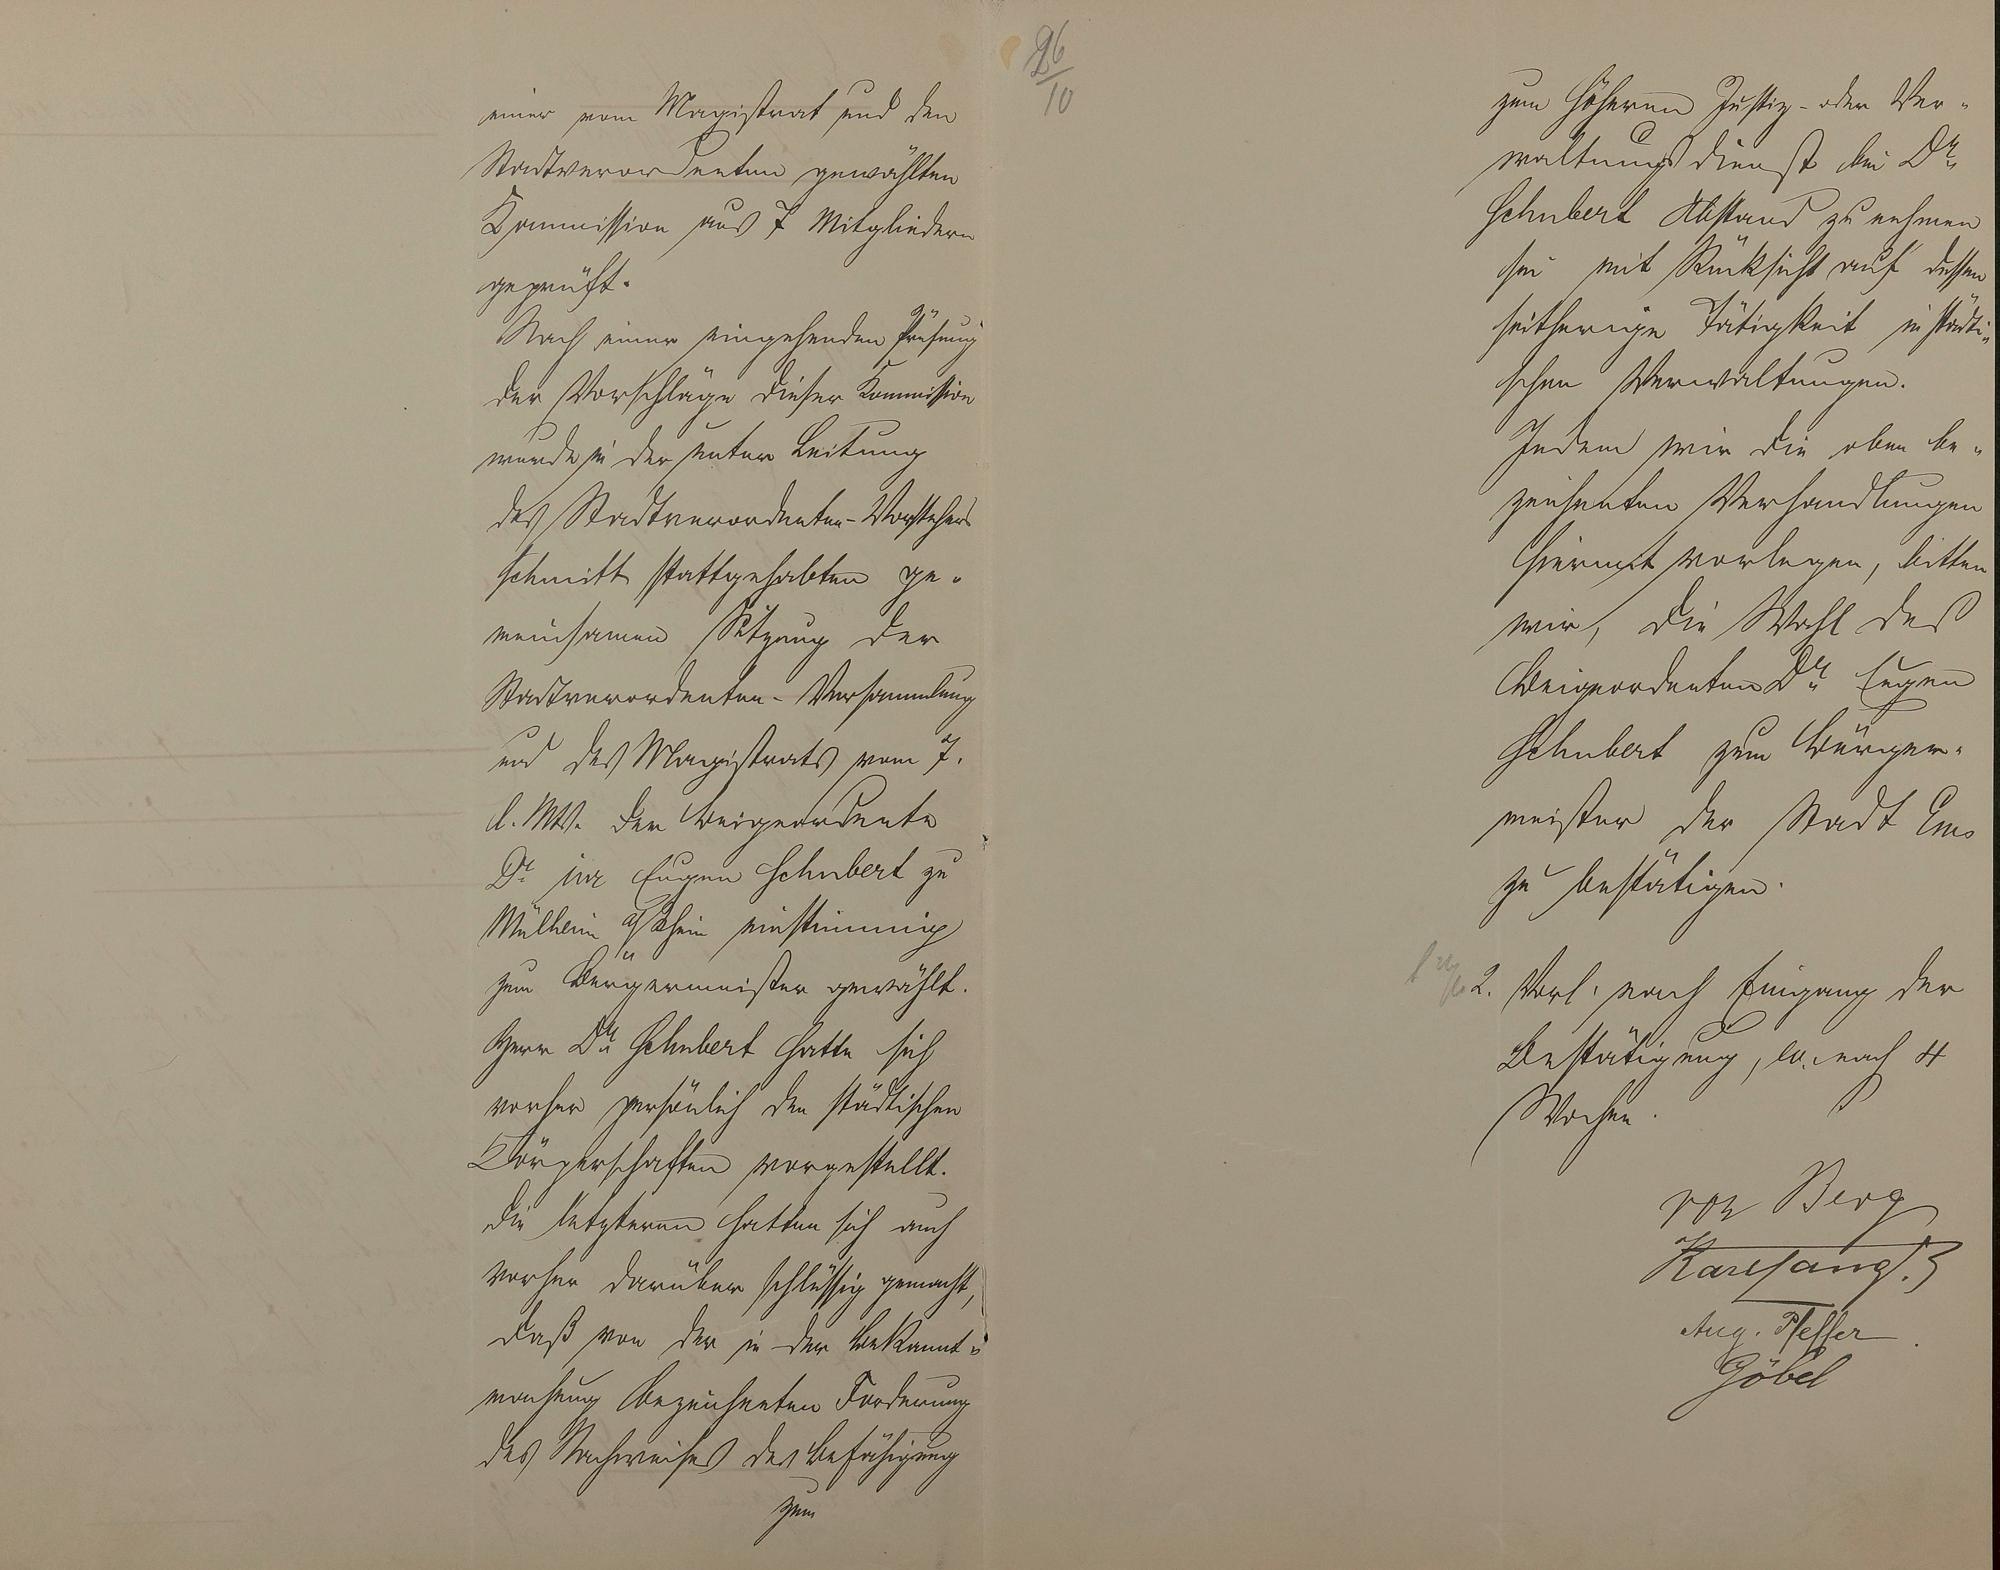 einer vom Magistrat und den
Stadtverordneten gewählten
Kommission aus 7 Mitgliedern
geprüft.
Nach einer eingehenden Prüfung
der Vorschläge dieser Kommission
wurde in der unter Leitung
des Stadtverordneten-Vorstehers
Schmitt stattgehabten ge-
meinsamen Sitzung der
Stadtverordneten-Versammlung
und des Magistrats vom 7.
l. Mts. der Beigeordnete
Dr. jur Eugen Schubert zu
Mülheim a/Rhein einstimmig
zum Bürgermeister gewählt.
Herr Dr. Schubert hatte sich
vorher persönlich den städtischen
Körperschaften vorgestellt.
Die letzteren hatten sich auch
vorher darüber schlüssig gemacht,
daß von der in der Bekannt-
machung bezeichneten Forderung
des Nachweises der Befähigung
zum
26/10
zum höheren Justiz- oder Ver-
waltungsdienst bei Dr.
Schubert Abstand zu nehmen
sei mit Rücksicht auf dessen
seitherige Tätigkeit in städti-
schen Verwaltungen.
Indem wir die oben be-
zeichneten Verhandlungen
hiermit vorlegen, bitten
wir, die Wahl des
Beigeordneten Dr. Eugen
Schubert zum Bürger-
meister der Stadt Ems
zu bestätigen.
2. Vorl. nach Eingang der
Bestätigung, ev. nach 4
Wochen.
von Berg
Aug. Pfeffer
Göbel